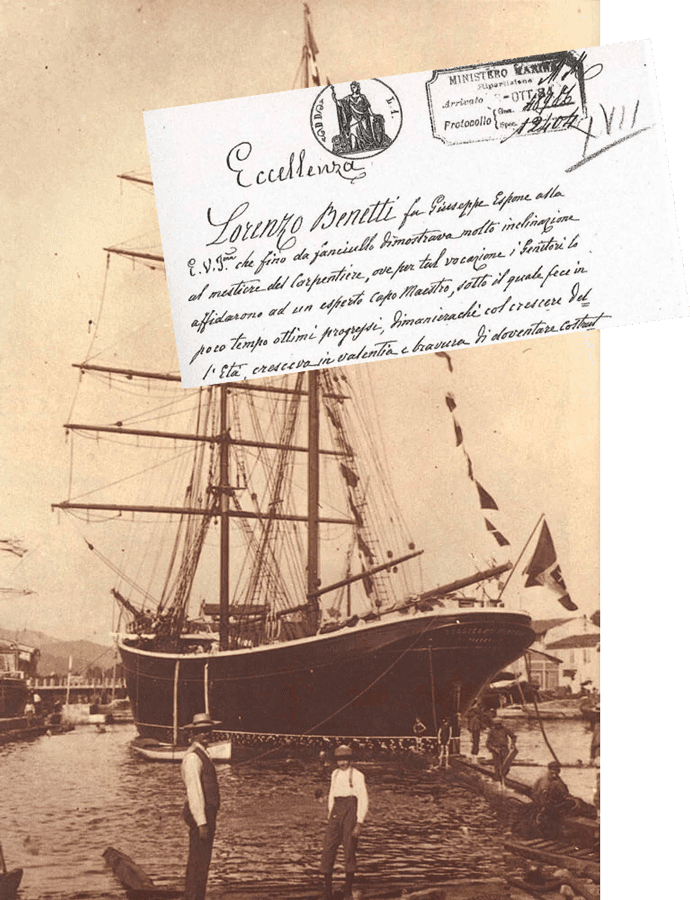 MINISTERO MARINA
Ripartizione
Arrivato OTT. 84
Protocollo Gen.
Spec. 12404
XVII
Eccellenza
Lorenzo Benetti fu Giuseppe Espone alla
E. V. che fino da fanciullo dimostrava molto inclinazione
al mestiere del Carpentiere, ove per tal vocazione i Genitori lo
affidarono ad un esperto Capo Maestro, sotto il quale fece in
poco tempo ottimi progressi, dimanieraché col crescere del=
l'Età, cresceva in valentia e bravura di doventare Costrut